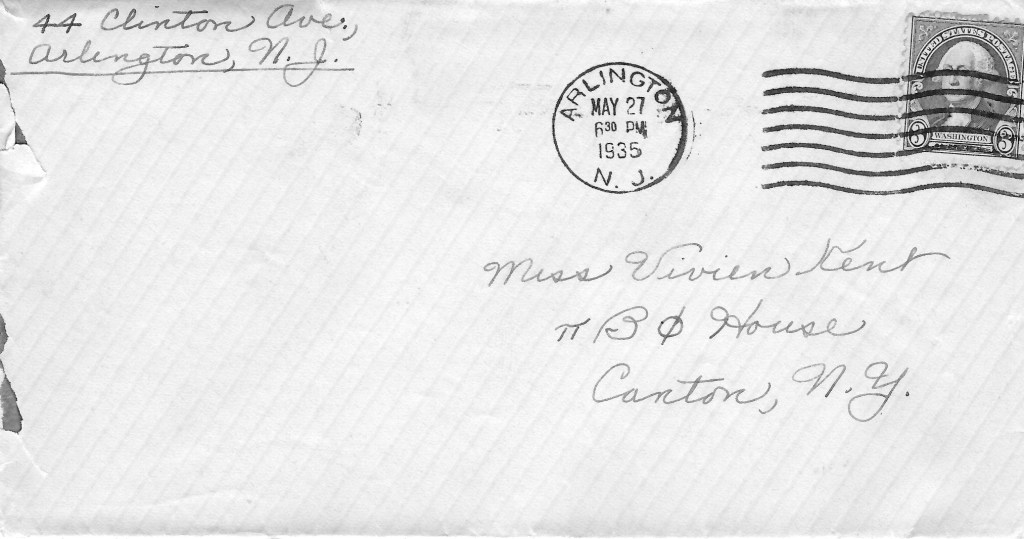 44 Clinton Ave.,
Arlington, N.J.
ARLINGTON
MAY 27
6 30 PM
1935
N. J.
UNITED STATES POSTAGE
3 WASHINGTON 3
Miss Vivien Kent
π B Φ House
Canton, N.Y.